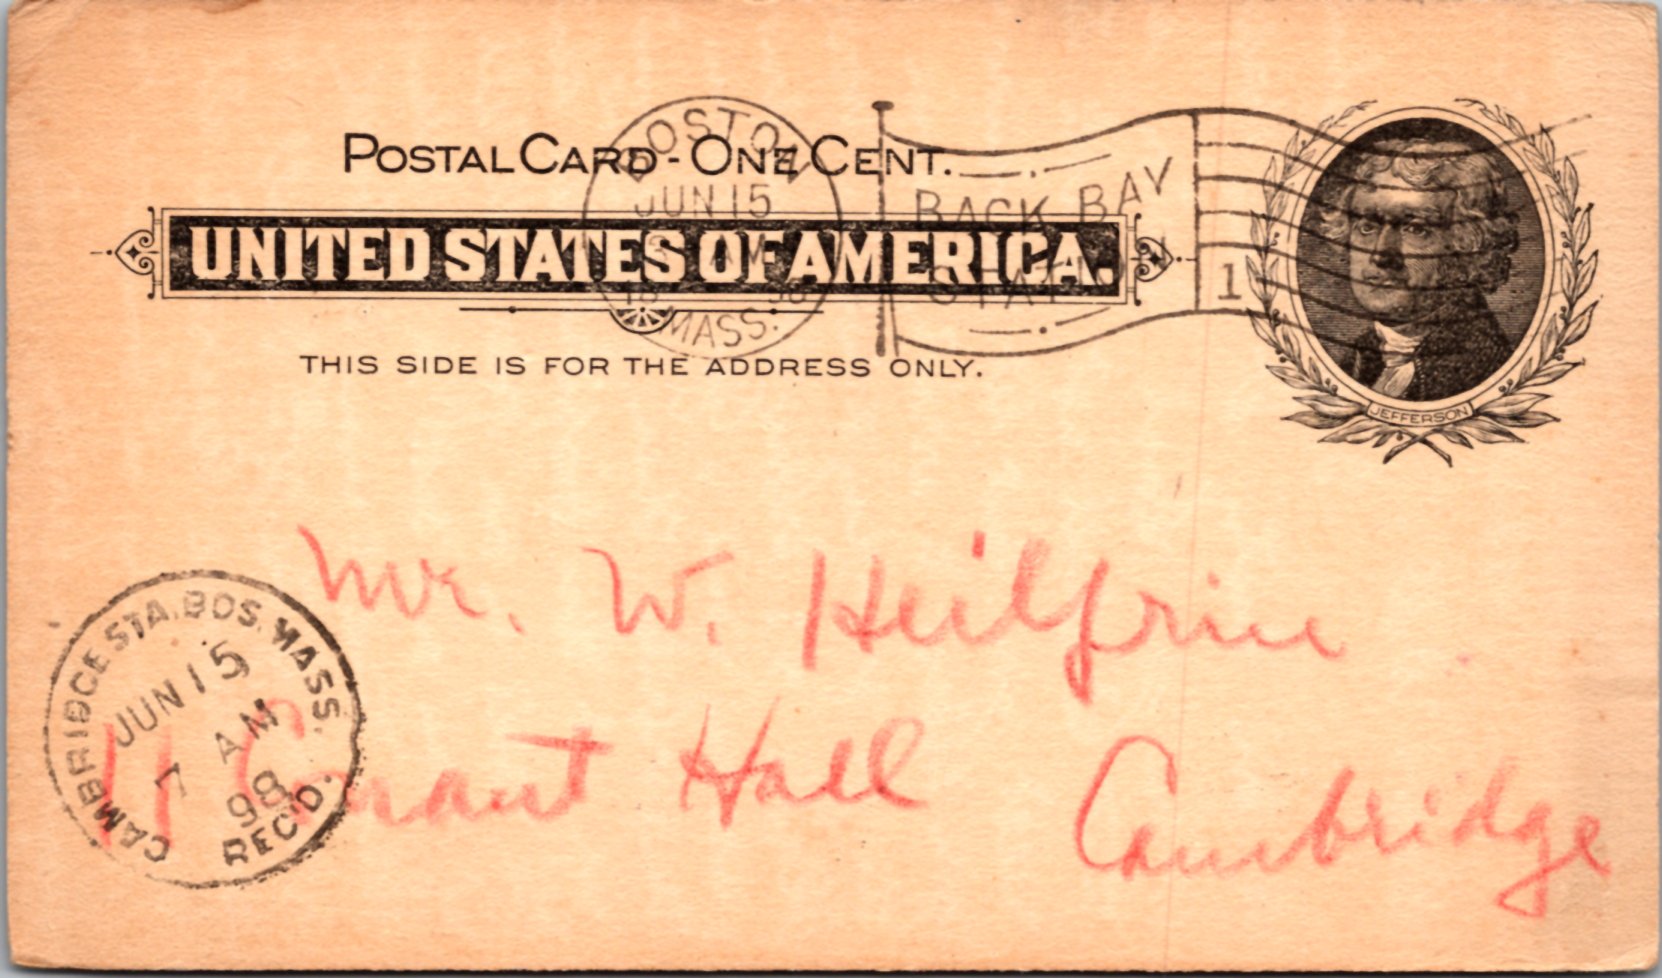 POSTAL CARD - ONE CENT.
UNITED STATES OF AMERICA.
THIS SIDE IS FOR THE ADDRESS ONLY.
BOSTON
JUN 15
AM
18 98
MASS.
BACK BAY
STAT
1
JEFFERSON
Mr. W. Heilfrin
11 Conant Hall
Cambridge
CAMBRIDGE STA. BOS. MASS.
JUN 15
7 AM
98
REC'D.